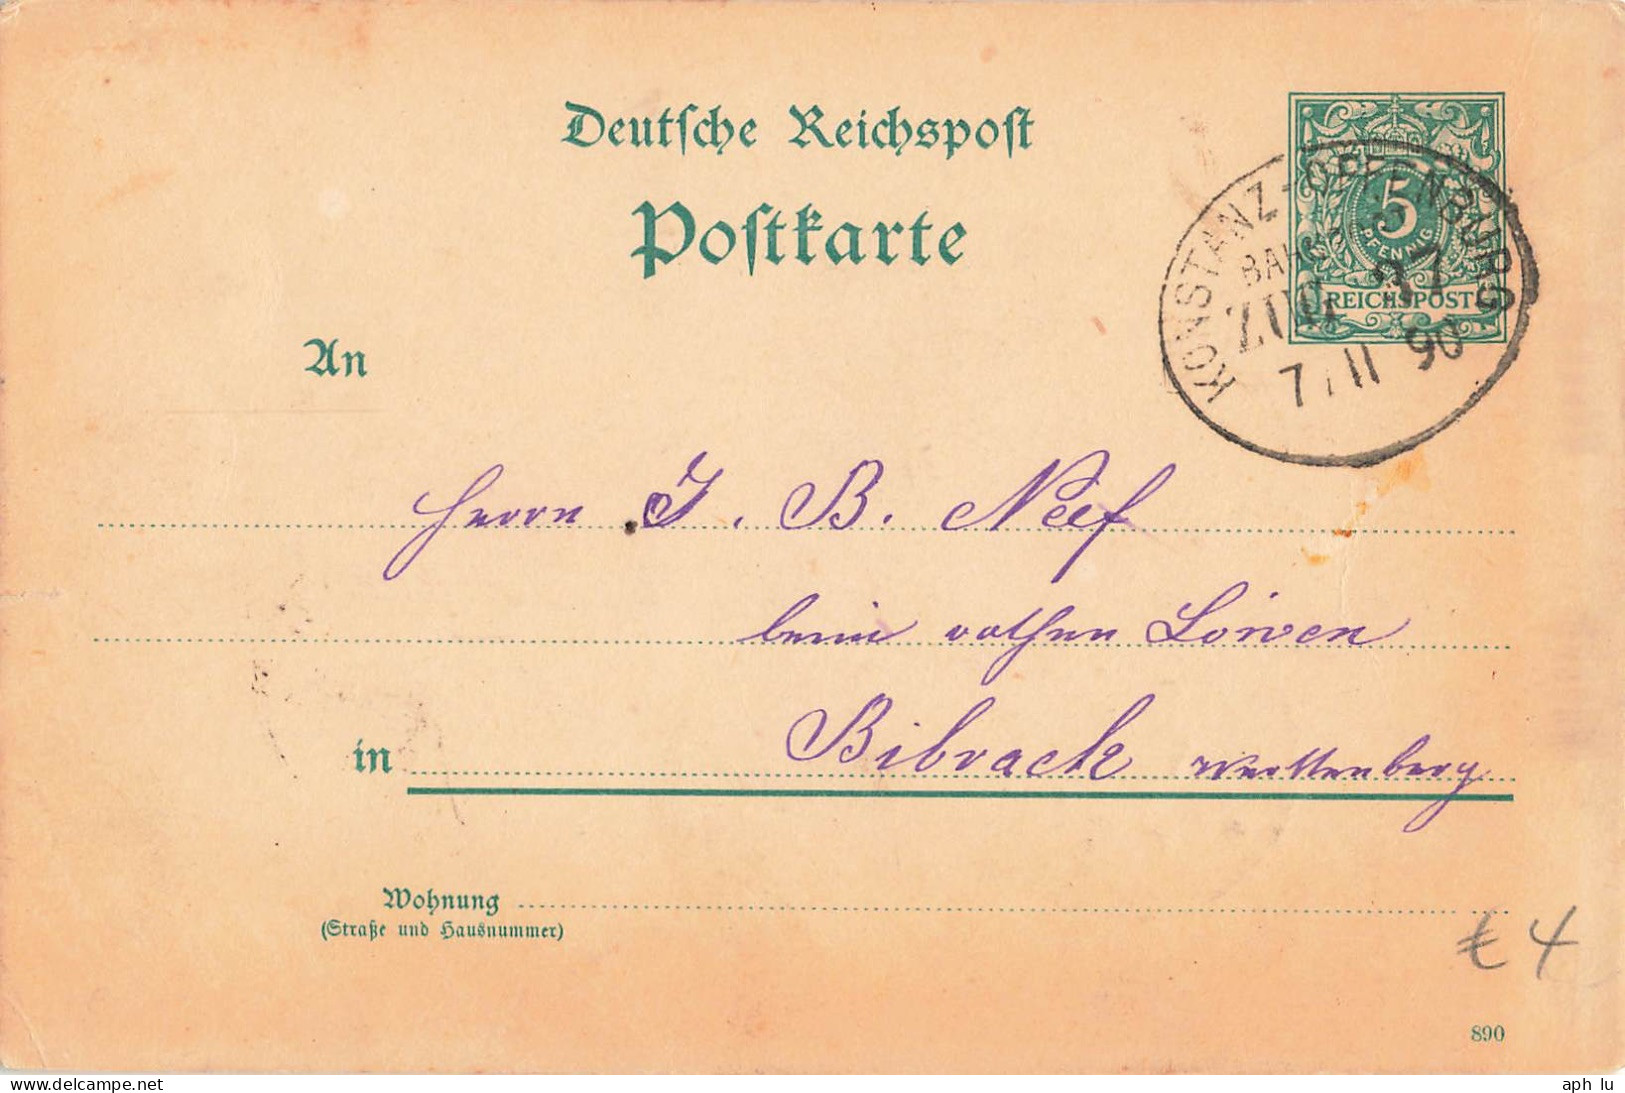 Deutsche Reichspost
Postkarte
5
PFENNIG
REICHSPOST
KONSTANZ-OFFENBURG
ZUG
7 11 90
An
Herrn J. B. Neef
beim rothen Löwen
in Bibrach Württenberg
Wohnung
(Straße und Hausnummer)
€ 4
890
www.delcampe.net
aph lu